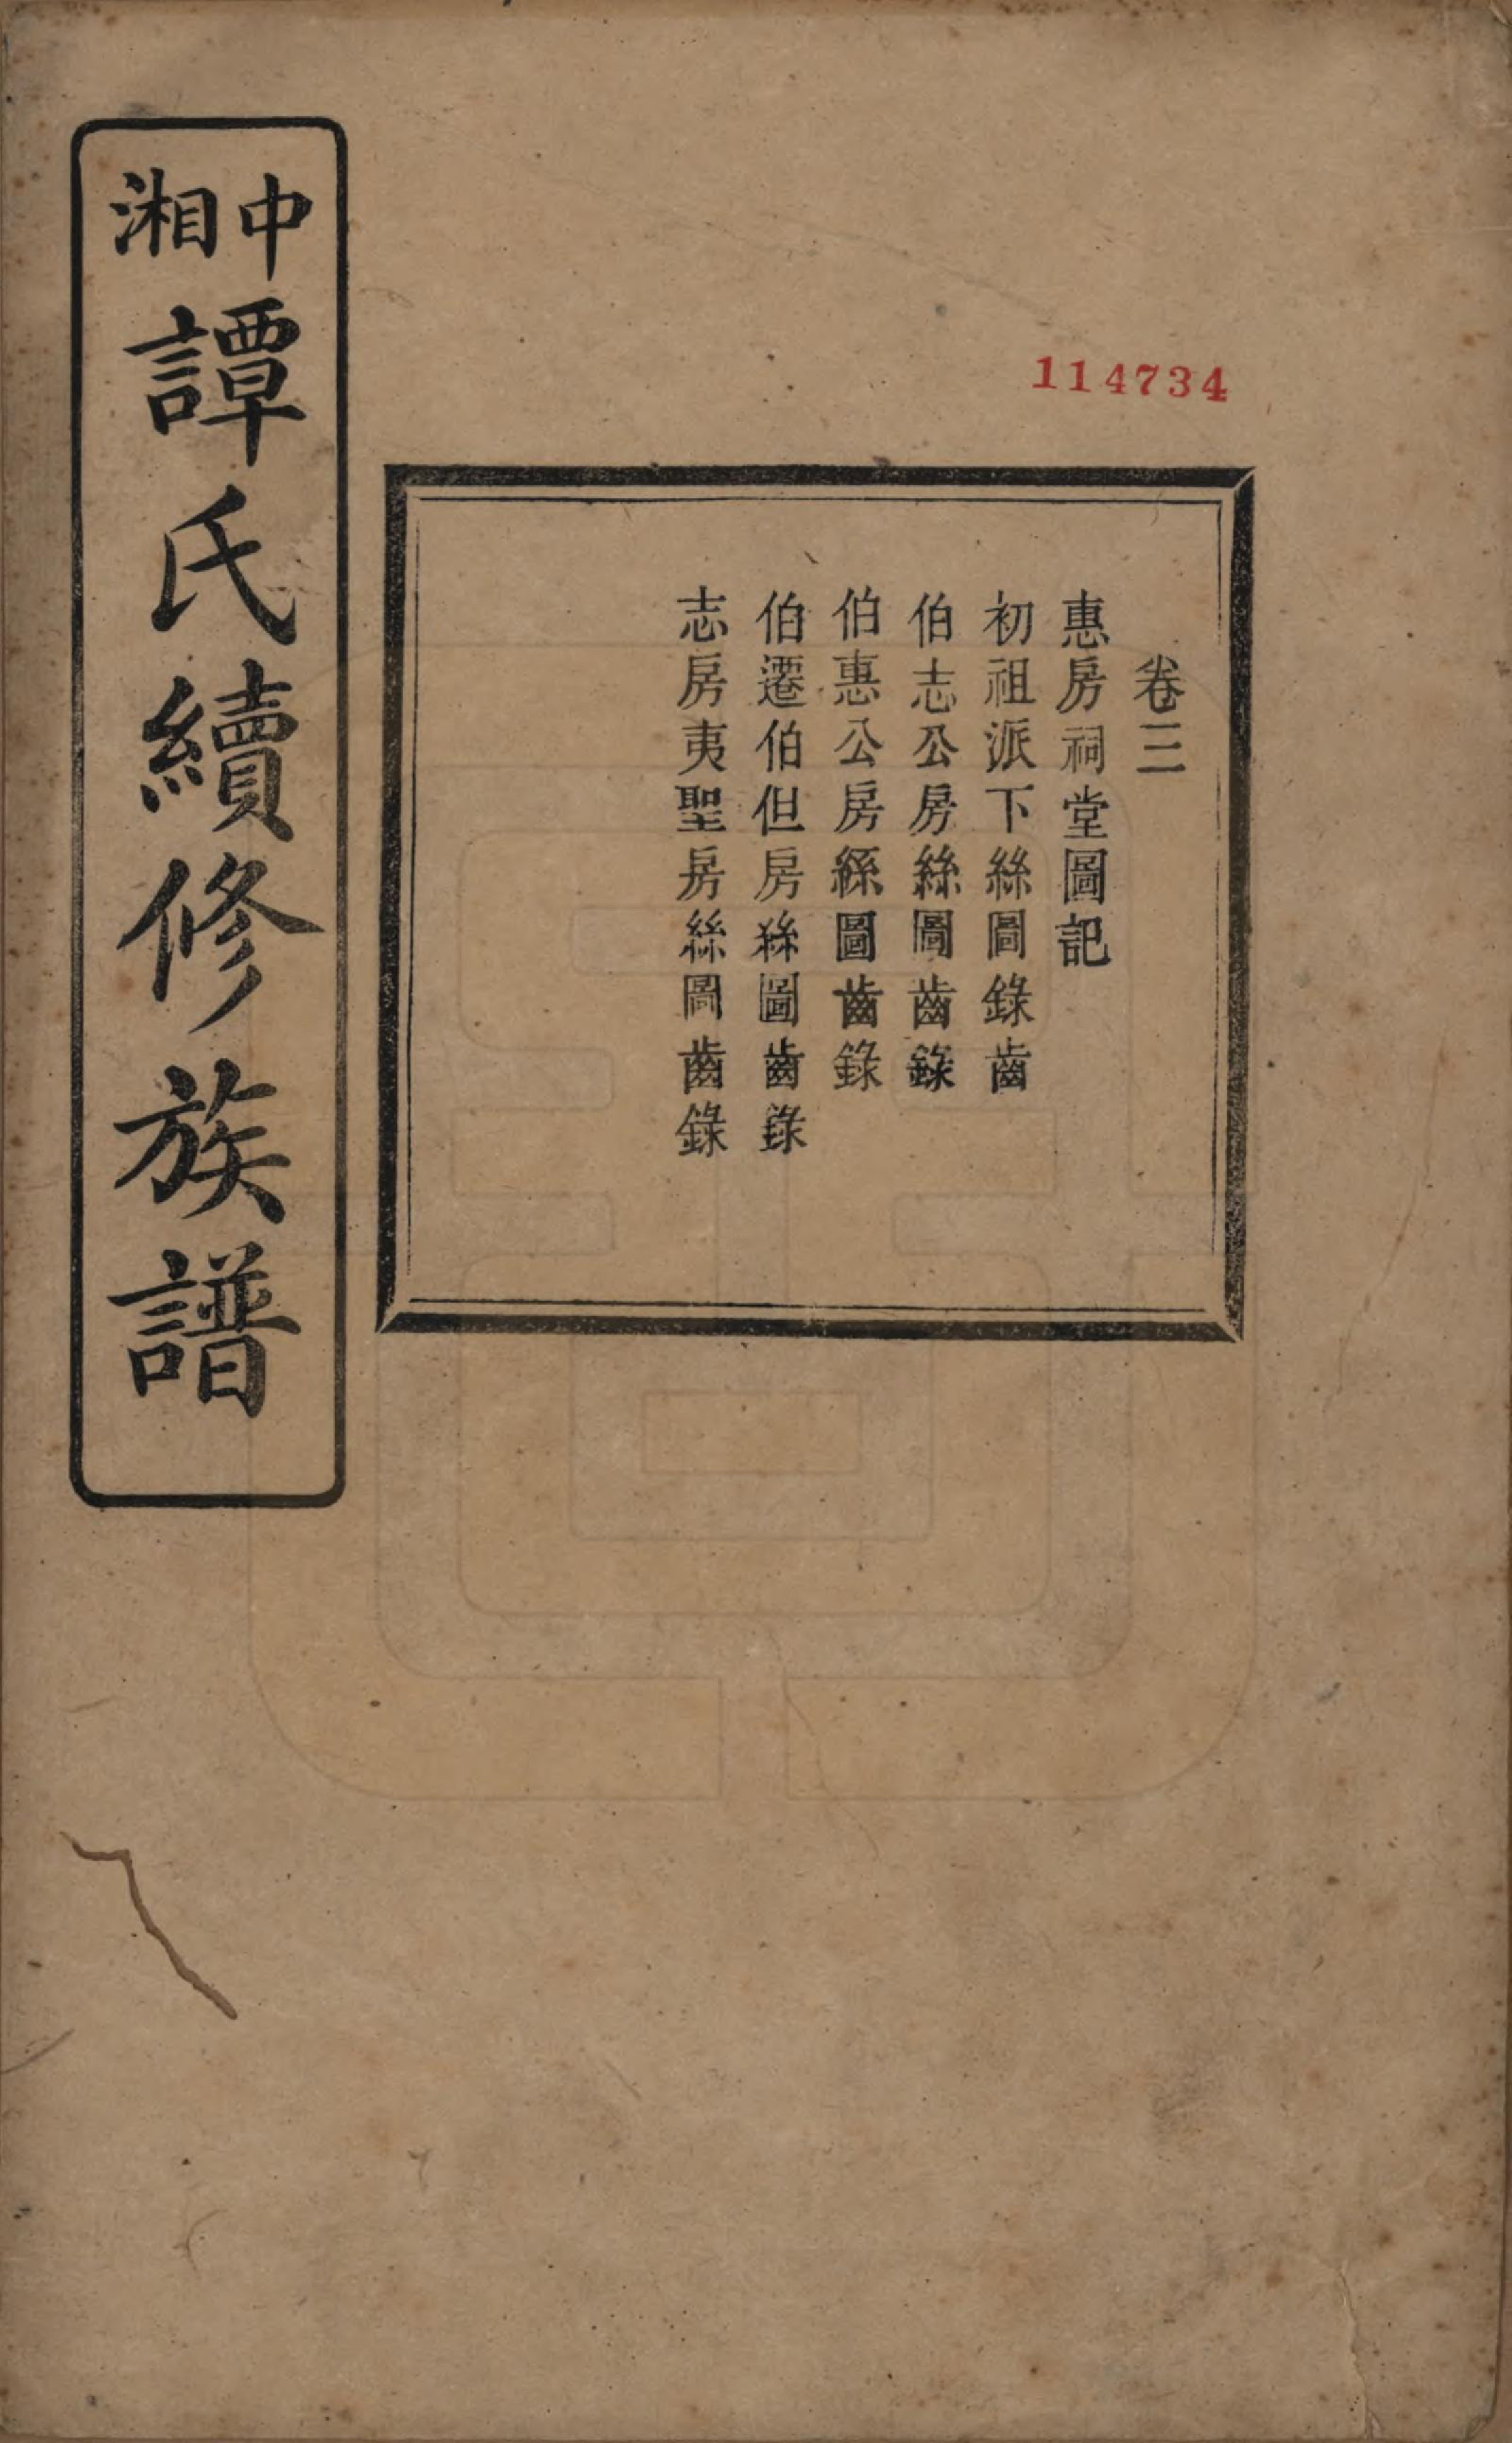 中湘譚氏續修族譜
114734
卷三
惠房祠堂圖記
初祖派下絲圖錄齒
伯志公房絲圖齒錄
伯惠公房繇圖齒錄
伯遷伯但房絲圖齒錄
志房夷聖房絲圖齒錄